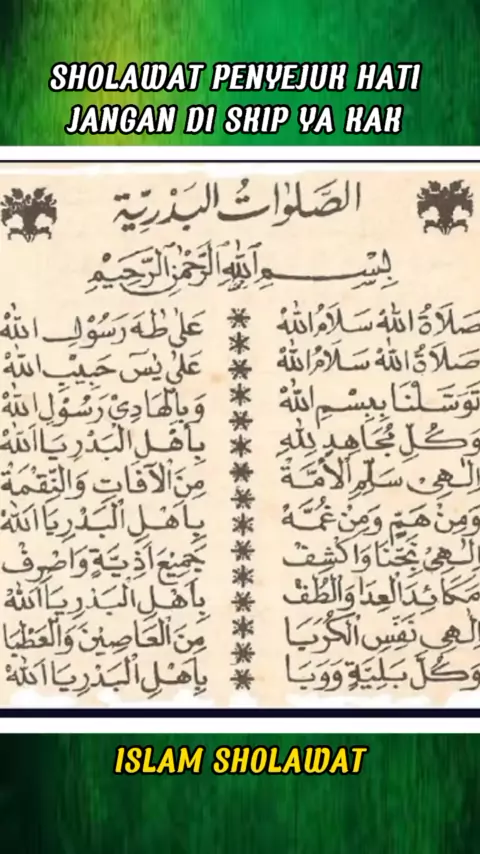 SHOLAWAT PENYEJUK HATI
JANGAN DI SKIP YA KAK
الصَّلَوَاتُ البَدْرِيَّة
بِسْمِ اللهِ الرَّحْمٰنِ الرَّحِيْمِ
صَلَاةُ اللهْ سَلَامُ اللهْ * عَلَى طٰهَ رَسُوْلِ اللهْ
صَلَاةُ اللهْ سَلَامُ اللهْ * عَلَى يٰسٓ حَبِيْبِ اللهْ
تَوَسَّلْنَا بِبِسْمِ اللهْ * وَبِالْهَادِيْ رَسُوْلِ اللهْ
وَكُلِّ مُجَاهِدٍ لِلّٰهِ * بِاَهْلِ الْبَدْرِ يَا اَللهْ
اِلٰهِيْ سَلِّمِ الْاُمَّةْ * مِنَ الْآفَاتِ وَالنِّقْمَةْ
وَمِنْ هَمٍّ وَمِنْ غُمَّةْ * بِاَهْلِ الْبَدْرِ يَا اَللهْ
اِلٰهِيْ نَجِّنَا وَاكْشِفْ * جَمِيْعَ اَذِيَّةٍ وَاصْرِفْ
مَكَائِدَ الْعِدَا وَالْطُفْ * بِاَهْلِ الْبَدْرِ يَا اَللهْ
اِلٰهِيْ نَفِّسِ الْكُرَبَا * مِنَ الْعَاصِيْنَ وَالْعَطْبَا
وَكُلَّ بَلِيَّةٍ وَوَبَا * بِاَهْلِ الْبَدْرِ يَا اَللهْ
ISLAM SHOLAWAT